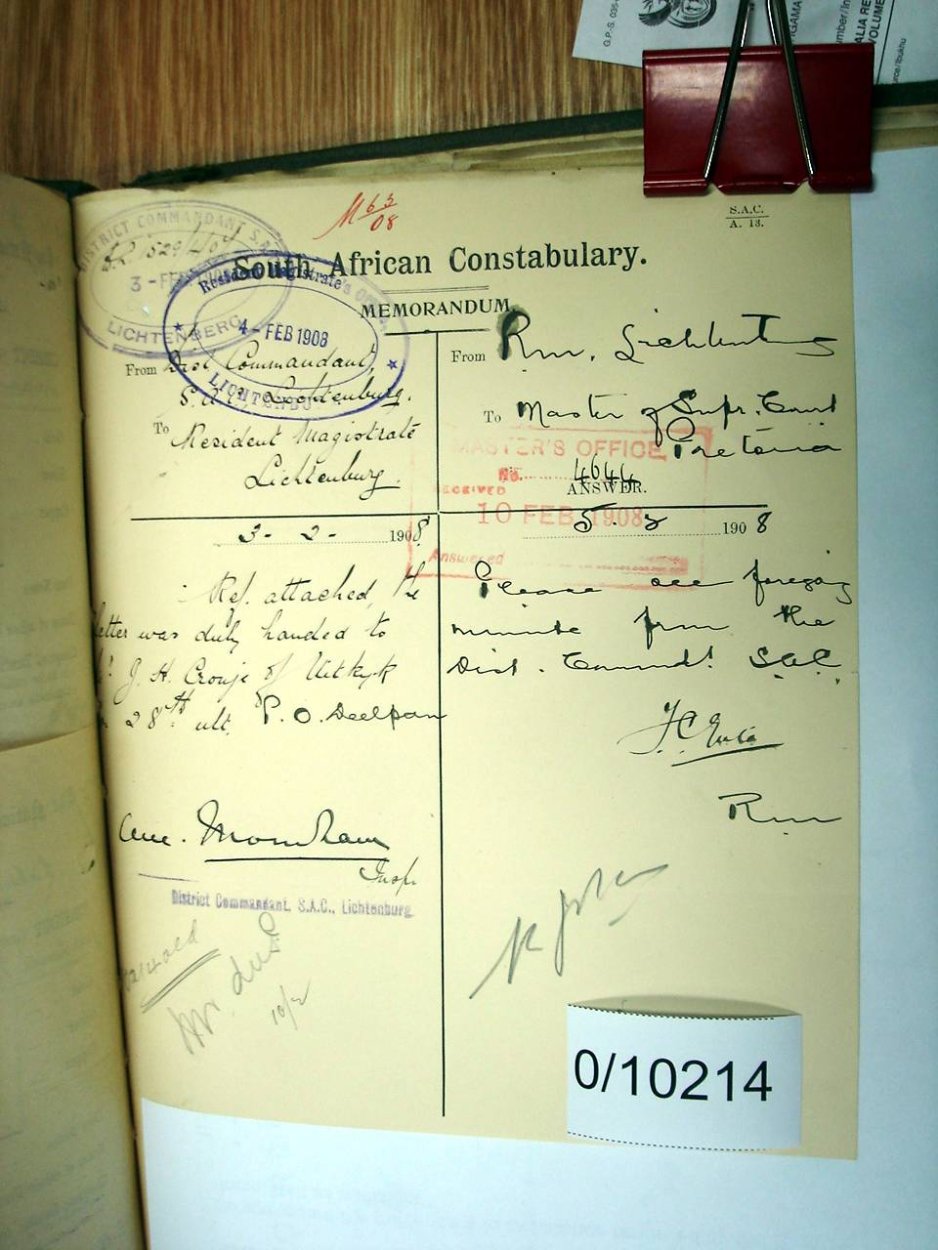 G.P.-S. 035-
GAMA
mber/In
ALIA RE
VOLUME
M 63/08
S.A.C.
A. 13.
DISTRICT COMMANDANT S.A.
S.R. 529/4/07
3 - FEB
LICHTENBERG
South African Constabulary.
Resident Magistrate's
4 - FEB 1908
MEMORANDUM.
From Dist Commandant,
S.A.C. Lichtenburg.
To Resident Magistrate
Lichtenburg.
3 - 2 - 1908
Ref. attached, the
letter was duly handed to
J. H. Cronje of Uitkyk
28th ult. P. O. Deelpan
Insp.
District Commandant, S.A.C., Lichtenburg.
10/2
From Rm. Lichtenburg
To Master of Supr. Court
Pretoria
MASTER'S OFFICE
No. 4644
RECEIVED
ANSWER.
10 FEB 1908
5. 2 1908
Answered
Please see foregoing
minute from the
Dist. Commdt. SAC.
Rm
0/10214